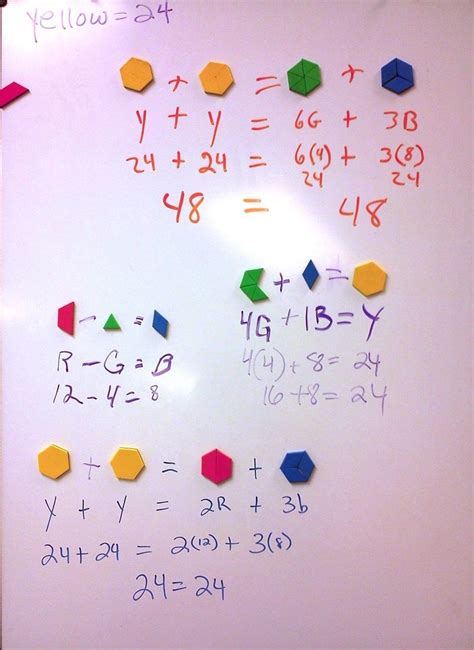 yellow = 24
+ = +
y + y = 6G + 3B
24 + 24 = 6(4) + 3(8)
24 24
48 = 48
+ =
4G + 1B = Y
4(4) + 8 = 24
16 + 8 = 24
- =
R - G = B
12 - 4 = 8
+ = +
y + y = 2R + 3b
24 + 24 = 2(12) + 3(8)
24 = 24